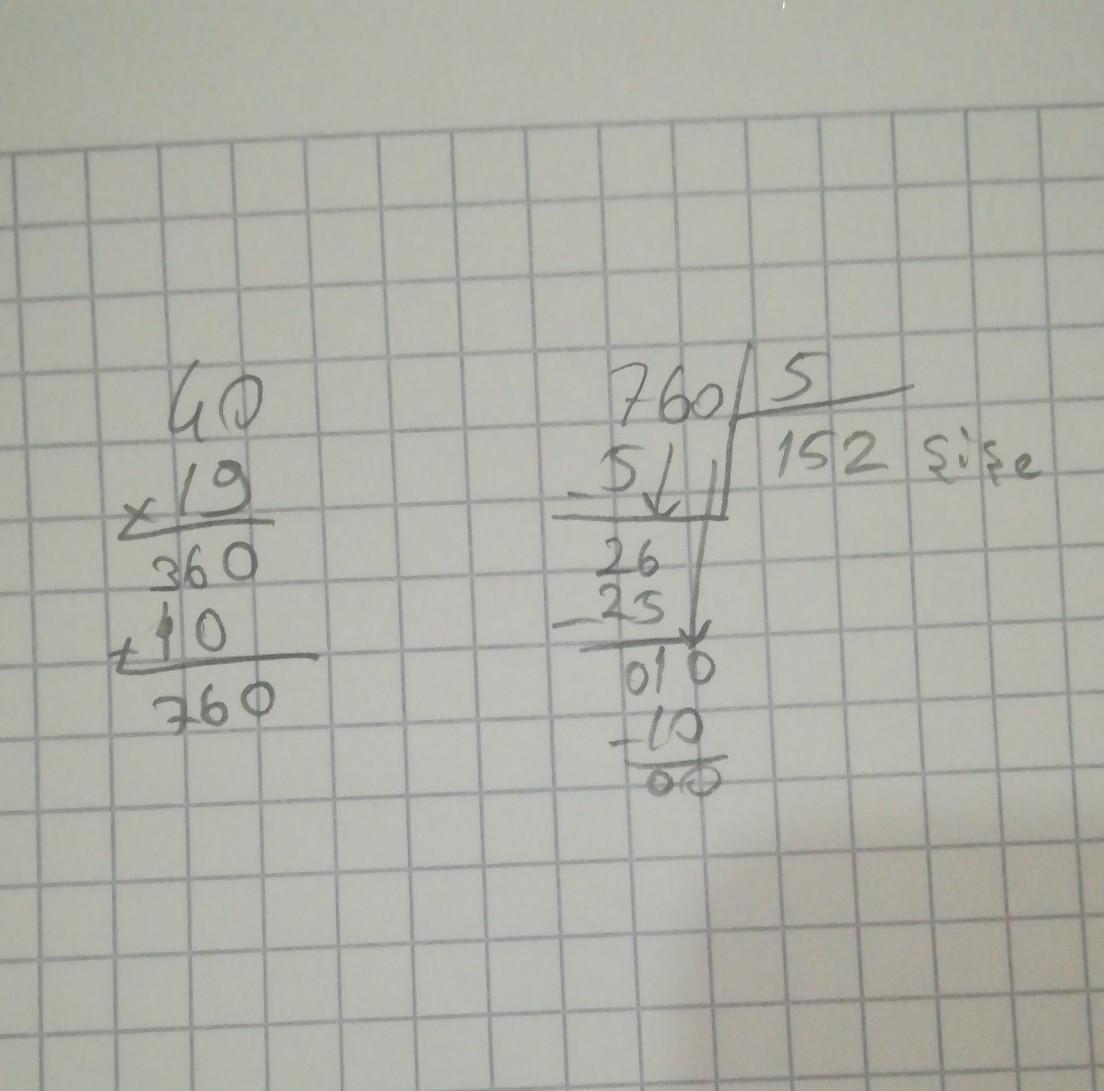 40
x 19
360
+ 40
760
760 5
- 5 152 şişe
26
- 25
010
- 10
00